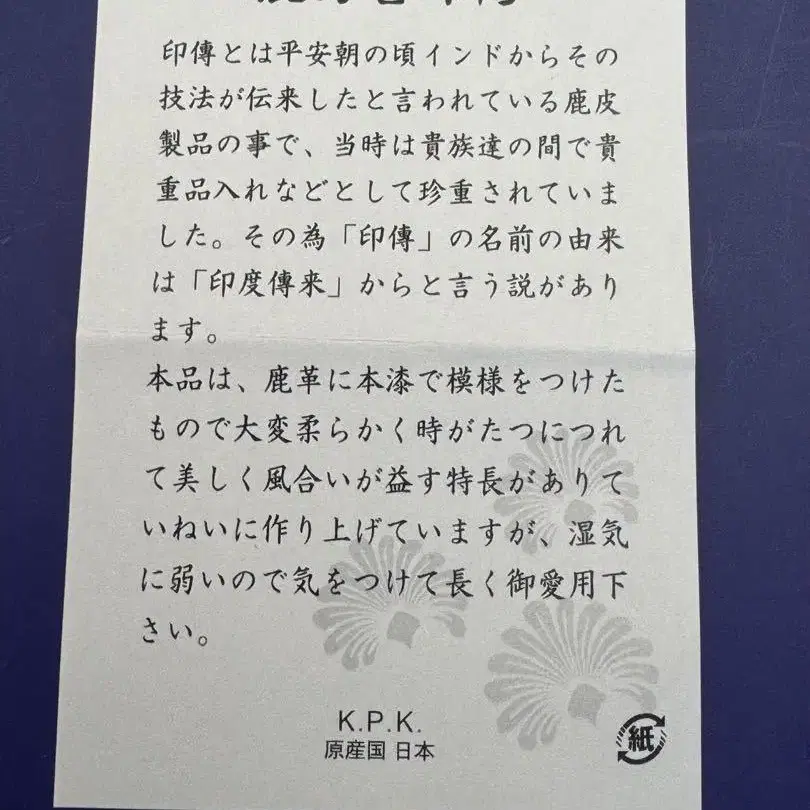 印傳とは平安朝の頃インドからその
技法が伝来したと言われている鹿皮
製品の事で、当時は貴族達の間で貴
重品入れなどとして珍重されていま
した。その為「印傳」の名前の由来
は「印度傳来」からと言う説があり
ます。
本品は、鹿革に本漆で模様をつけた
もので大変柔らかく時がたつにつれ
て美しく風合いが益す特長がありて
いねいに作り上げていますが、湿気
に弱いので気をつけて長く御愛用下
さい。
K.P.K.
原産国 日本
紙